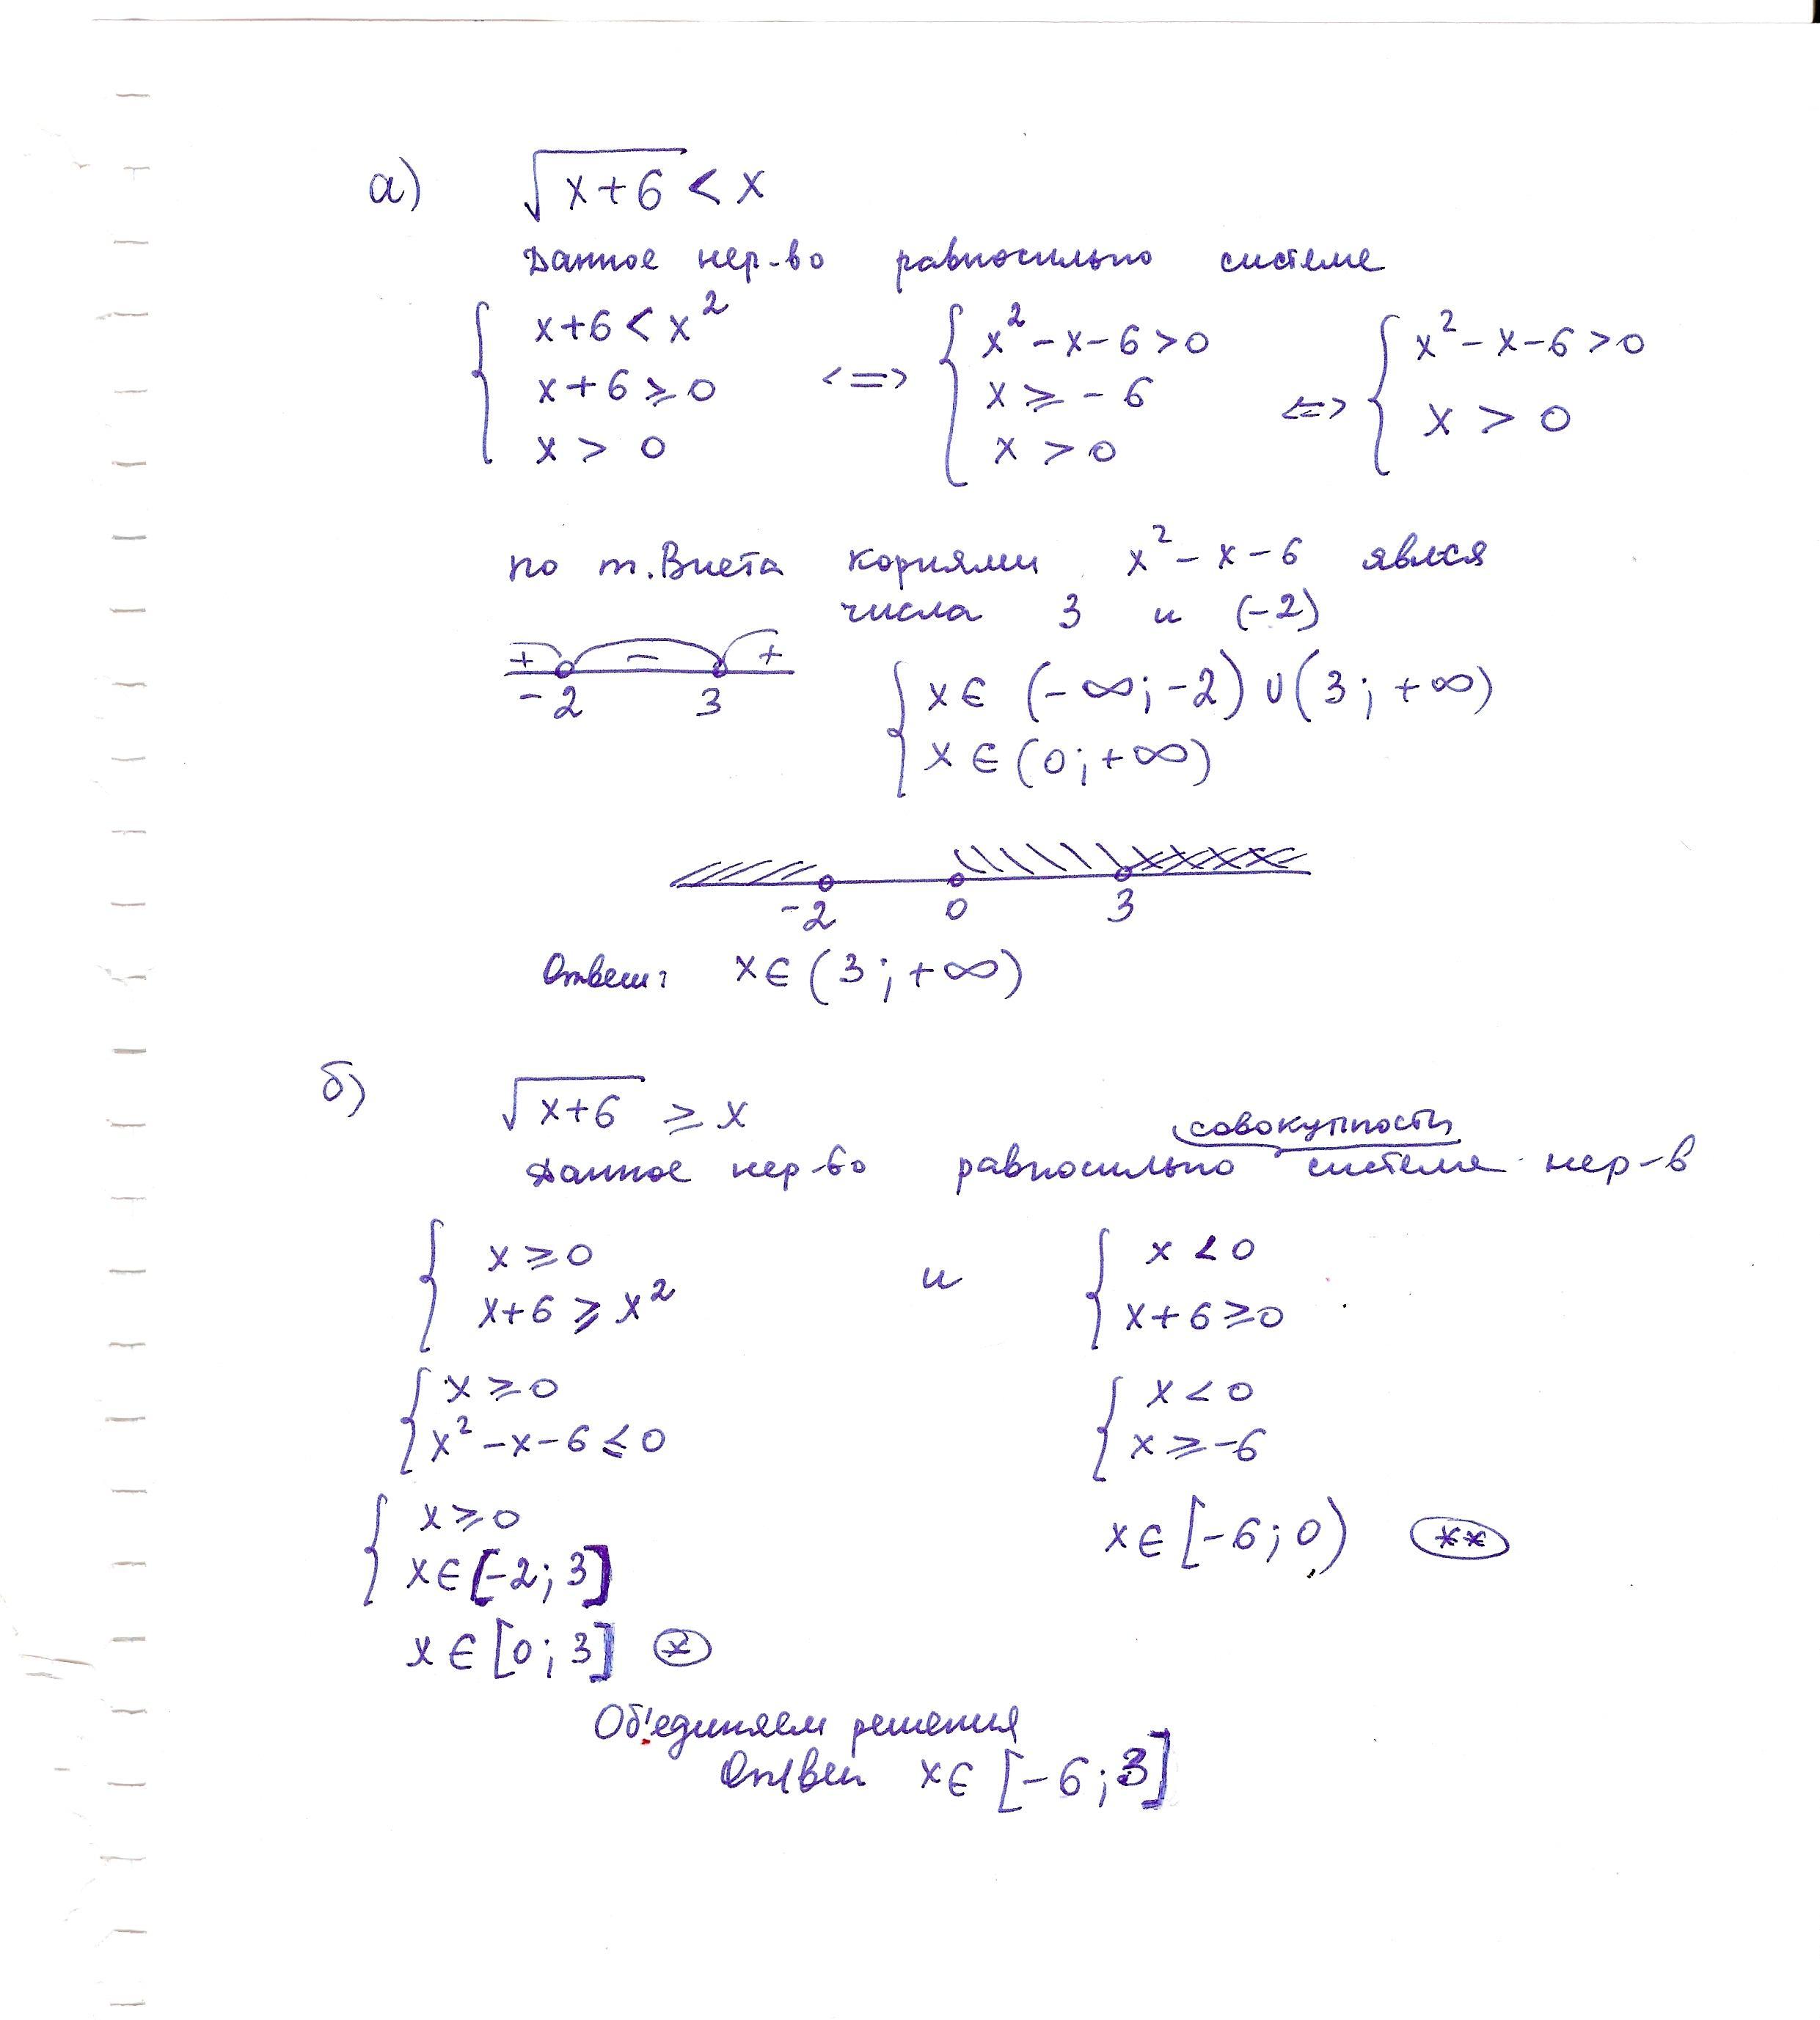 а) √x+6 < x
Данное нер-во равносильно системе
{ x+6 < x² <=> { x²-x-6 > 0 <=> { x²-x-6 > 0
x+6 ≥ 0 x ≥ -6 x > 0
x > 0 x > 0
по т. Виета корнями x²-x-6 явлся
числа 3 и (-2)
+ - +
-2 3
{ x ∈ (-∞; -2) ∪ (3; +∞)
x ∈ (0; +∞)
-2 0 3
Ответ: x ∈ (3; +∞)
б) √x+6 ≥ x
совокупности
Данное нер-во равносильно системе нер-в
{ x ≥ 0 и { x < 0
x+6 ≥ x² x+6 ≥ 0
{ x ≥ 0 { x < 0
x²-x-6 ≤ 0 x ≥ -6
{ x ≥ 0
x ∈ [-2; 3] x ∈ [-6; 0) **
x ∈ [0; 3] *
Об'единяем решения
Ответ x ∈ [-6; 3]